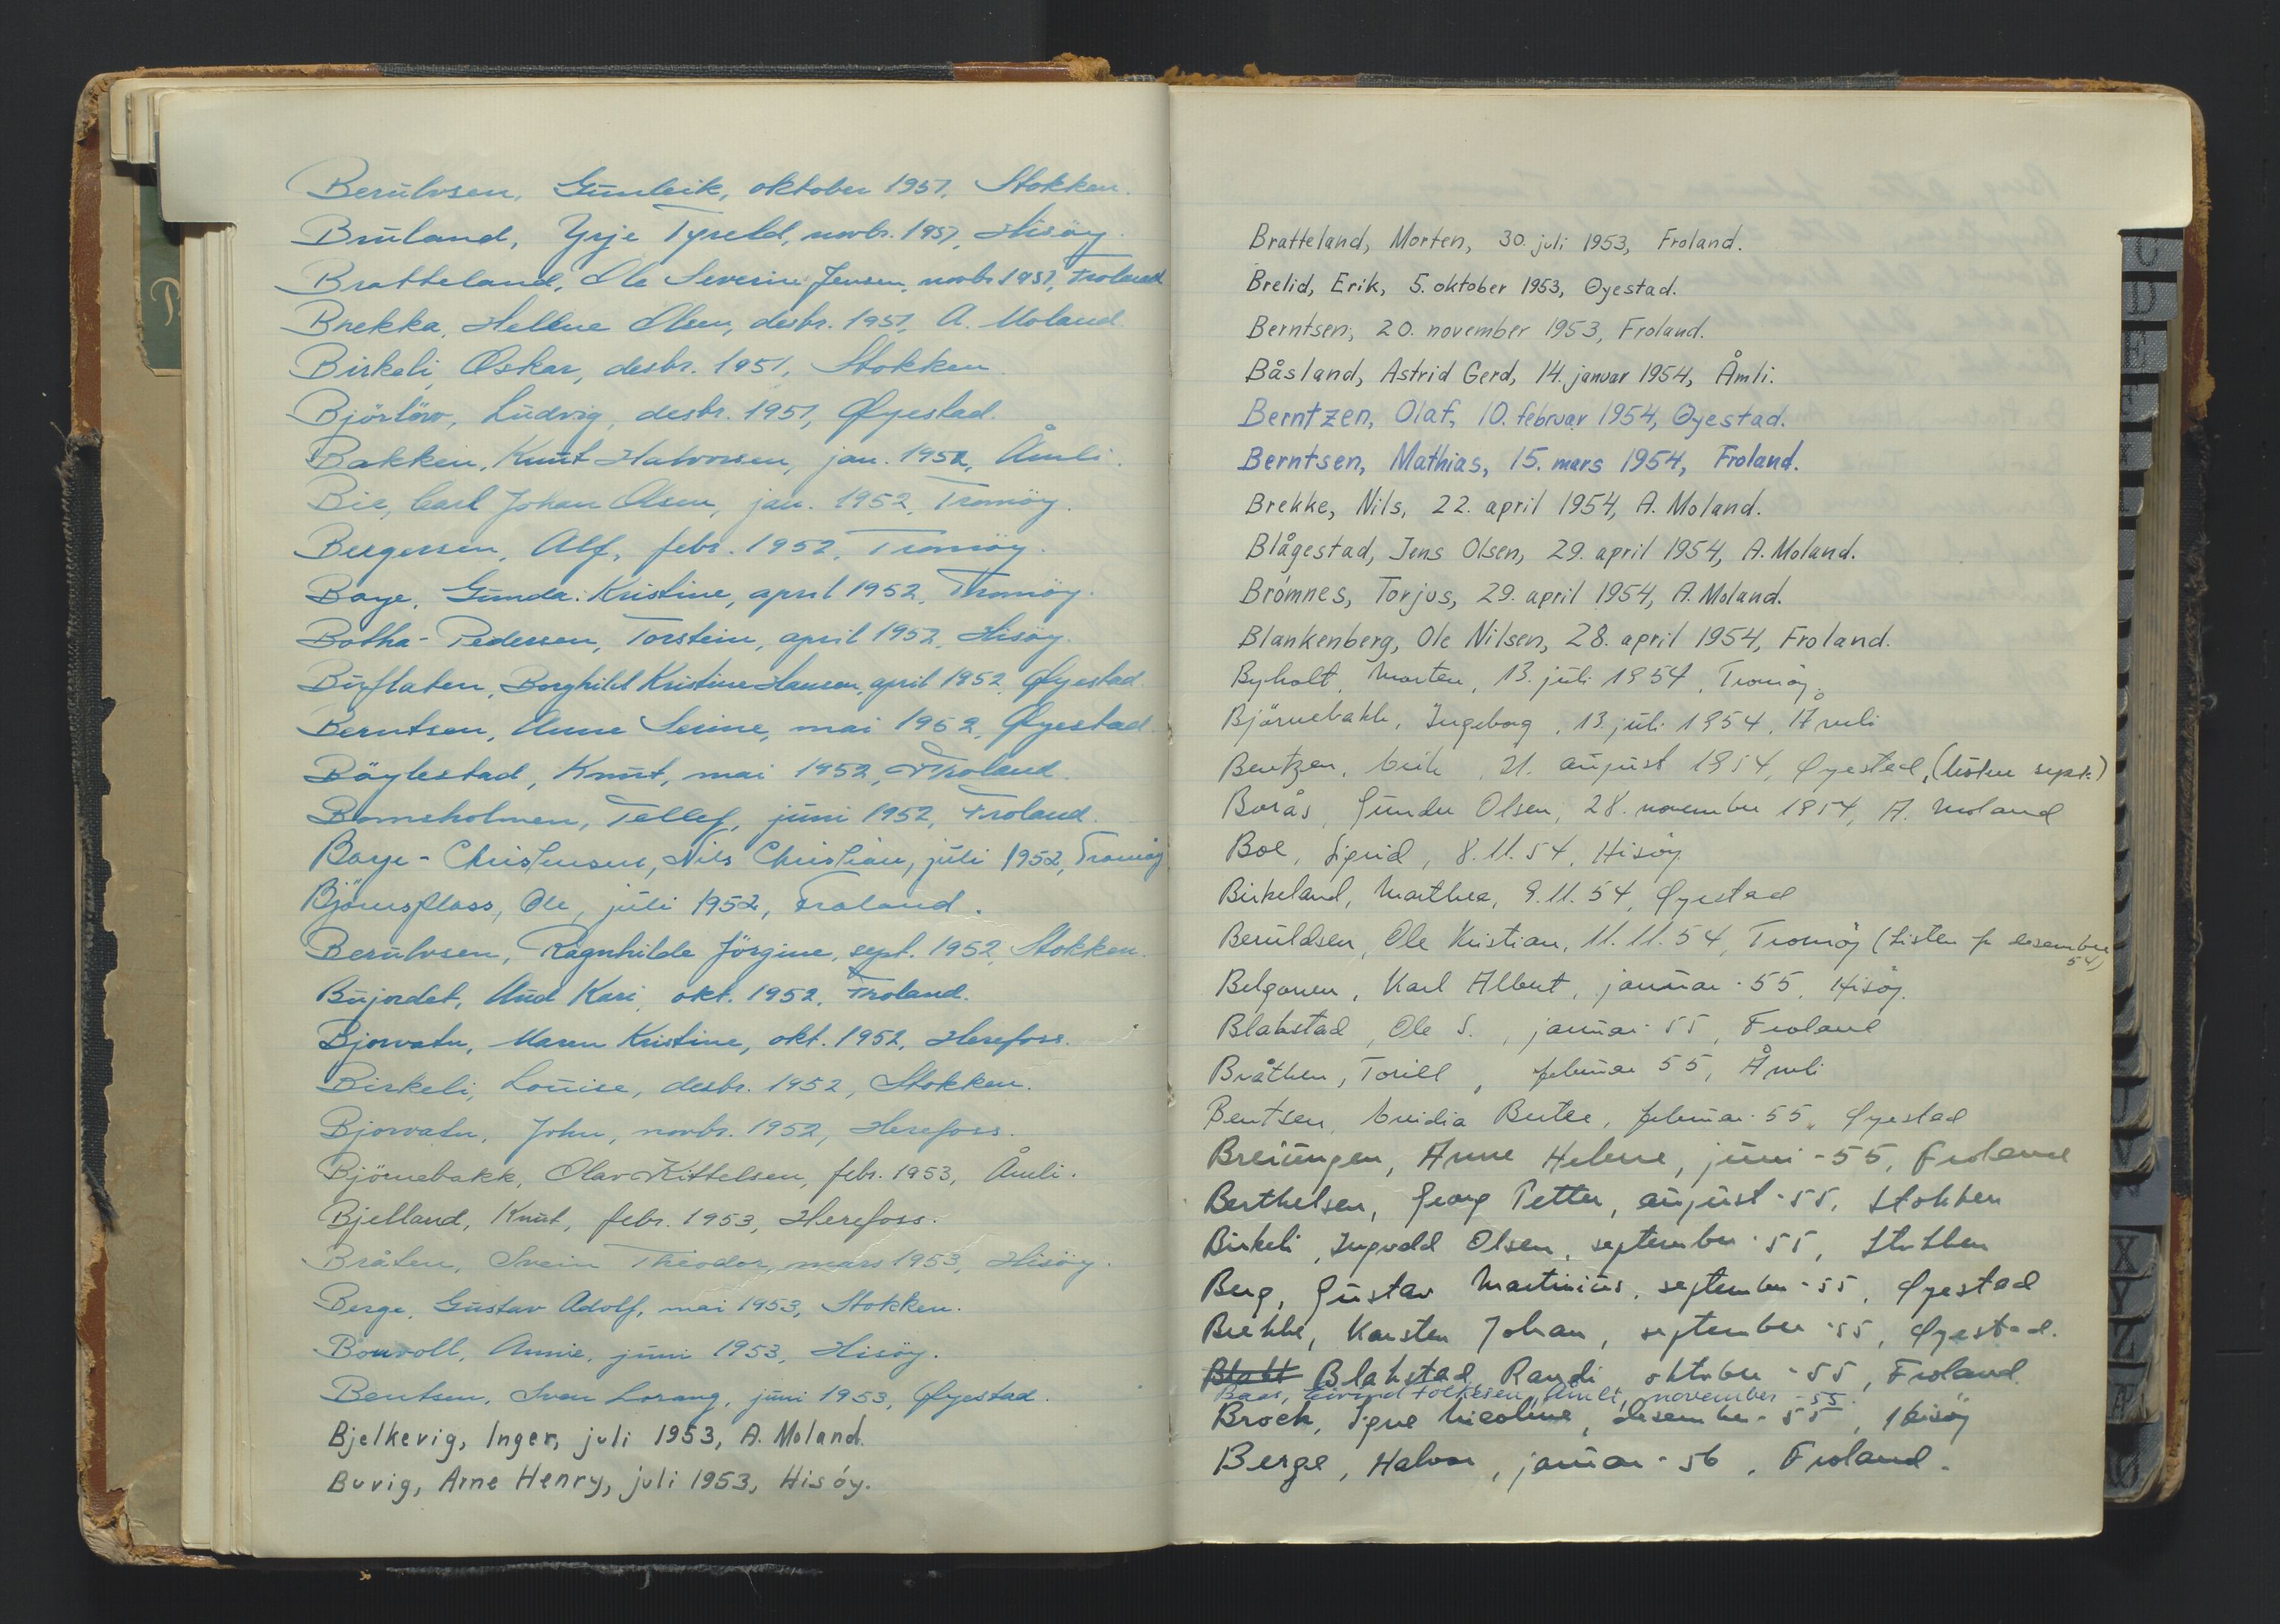 Berulvsen, Gunleik, oktober 1951, Stokken.
Bruland, Yrje Tyreld, novbr. 1951, Hisöy.
Bratteland, Ole Severin Jensen, novbr 1951, Froland
Brekka, Hellene Olsen, desbr. 1951, A. Moland.
Birkeli, Oskar, desbr. 1951, Stokken.
Björlöw, Ludvig, desbr. 1951, Øyestad.
Bakken, Knut Halvorsen, jan. 1952, Åmli.
Bie, Carl Johan Olsen, jan. 1952, Tromöy.
Birgersen, Alf, febr. 1952, Tromöy.
Boye, Gunda Kristine, april 1952, Tromöy.
Botha-Pedersen, Torstein, april 1952, Hisöy.
Burflaten, Borghild Kristine Hansen, april 1952, Øyestad.
Berntsen, Anne Serine, mai 1952, Øyestad.
Böylestad, Knut, mai 1952, Froland.
Bomsholmen, Tellef, juni 1952, Froland.
Boye-Christensen, Nils Christian, juli 1952, Tromöy
Björnsplass, Ole, juli 1952, Froland.
Berulvsen, Ragnhilde Jörgine, sept. 1952, Stokken.
Bujordet, Aud Kari, okt. 1952, Froland.
Bjorvatn, Maren Kristine, okt. 1952, Herefoss.
Birkeli, Louise, desbr. 1952, Stokken.
Bjorvatn, John, novbr. 1952, Herefoss.
Björnebakk, Olav Kittelsen, febr. 1953, Åmli.
Bjelland, Knut, febr. 1953, Herefoss.
Bråten, Svein Theodor, mars 1953, Hisöy.
Berge, Gustav Adolf, mai 1953, Stokken.
Bouvoll, Annie, juni 1953, Hisöy.
Bentsen, Sven Lorang, juni 1953, Øyestad.
Bjelkevig, Inger, juli 1953, A. Moland.
Buvig, Arne Henry, juli 1953, Hisóy.
Bratteland, Morten, 30. juli 1953, Froland.
Brelid, Erik, 5. oktober 1953, Øyestad.
Berntsen, 20. november 1953, Froland.
Båsland, Astrid Gerd, 14. januar 1954, Åmli.
Berntzen, Olaf, 10. februar 1954, Øyestad.
Berntsen, Mathias, 15. mars 1954, Froland.
Brekke, Nils, 22. april 1954, A. Moland.
Blågestad, Jens Olsen, 29. april 1954, A. Moland.
Brómnes, Torjus, 29. april 1954, A. Moland.
Blankenberg, Ole Nilsen, 28. april 1954, Froland.
Byholt, Morten, 13. juli 1954, Tromöy.
Björnebakk, Ingeborg, 13. juli 1954, Åmli
Bentzen, 21. august 1954, Øyestad, (listen sept.)
Borås, Gunder Olsen, 28. november 1954, A. Moland
Boe, Sigrid, 8.11.54, Hisöy
Birkeland, Marthea, 9.11.54, Øyestad
Beruldsen, Ole Kristian, 11.11.54, Tromöy (Listen f. desember 54)
Belgonen, Karl Albert, januar-55, Hisöy.
Blakstad, Ole S., januar-55, Froland
Bråthen, Torill, februar 55, Åmli
Bentsen, Bertee, februar-55, Øyestad
Breiungen, Anne Helene, juni-55, Froland
Berthelsen, Georg Petter, august-55, Stokken
Birkeli, Ingvald Olsen, september-55, Stokken
Berg, Gustav Martinius, september-55, Øyestad
Brekke, Karsten Johan, september-55, Øyestad.
Blakt Blakstad, Randi oktober-55, Froland.
Baas, Eivind Folkesen, Åmli, november -55.
Brock, Signe Nicoline, desember-55, Hisöy
Berge, Halvor, januar-56, Froland.